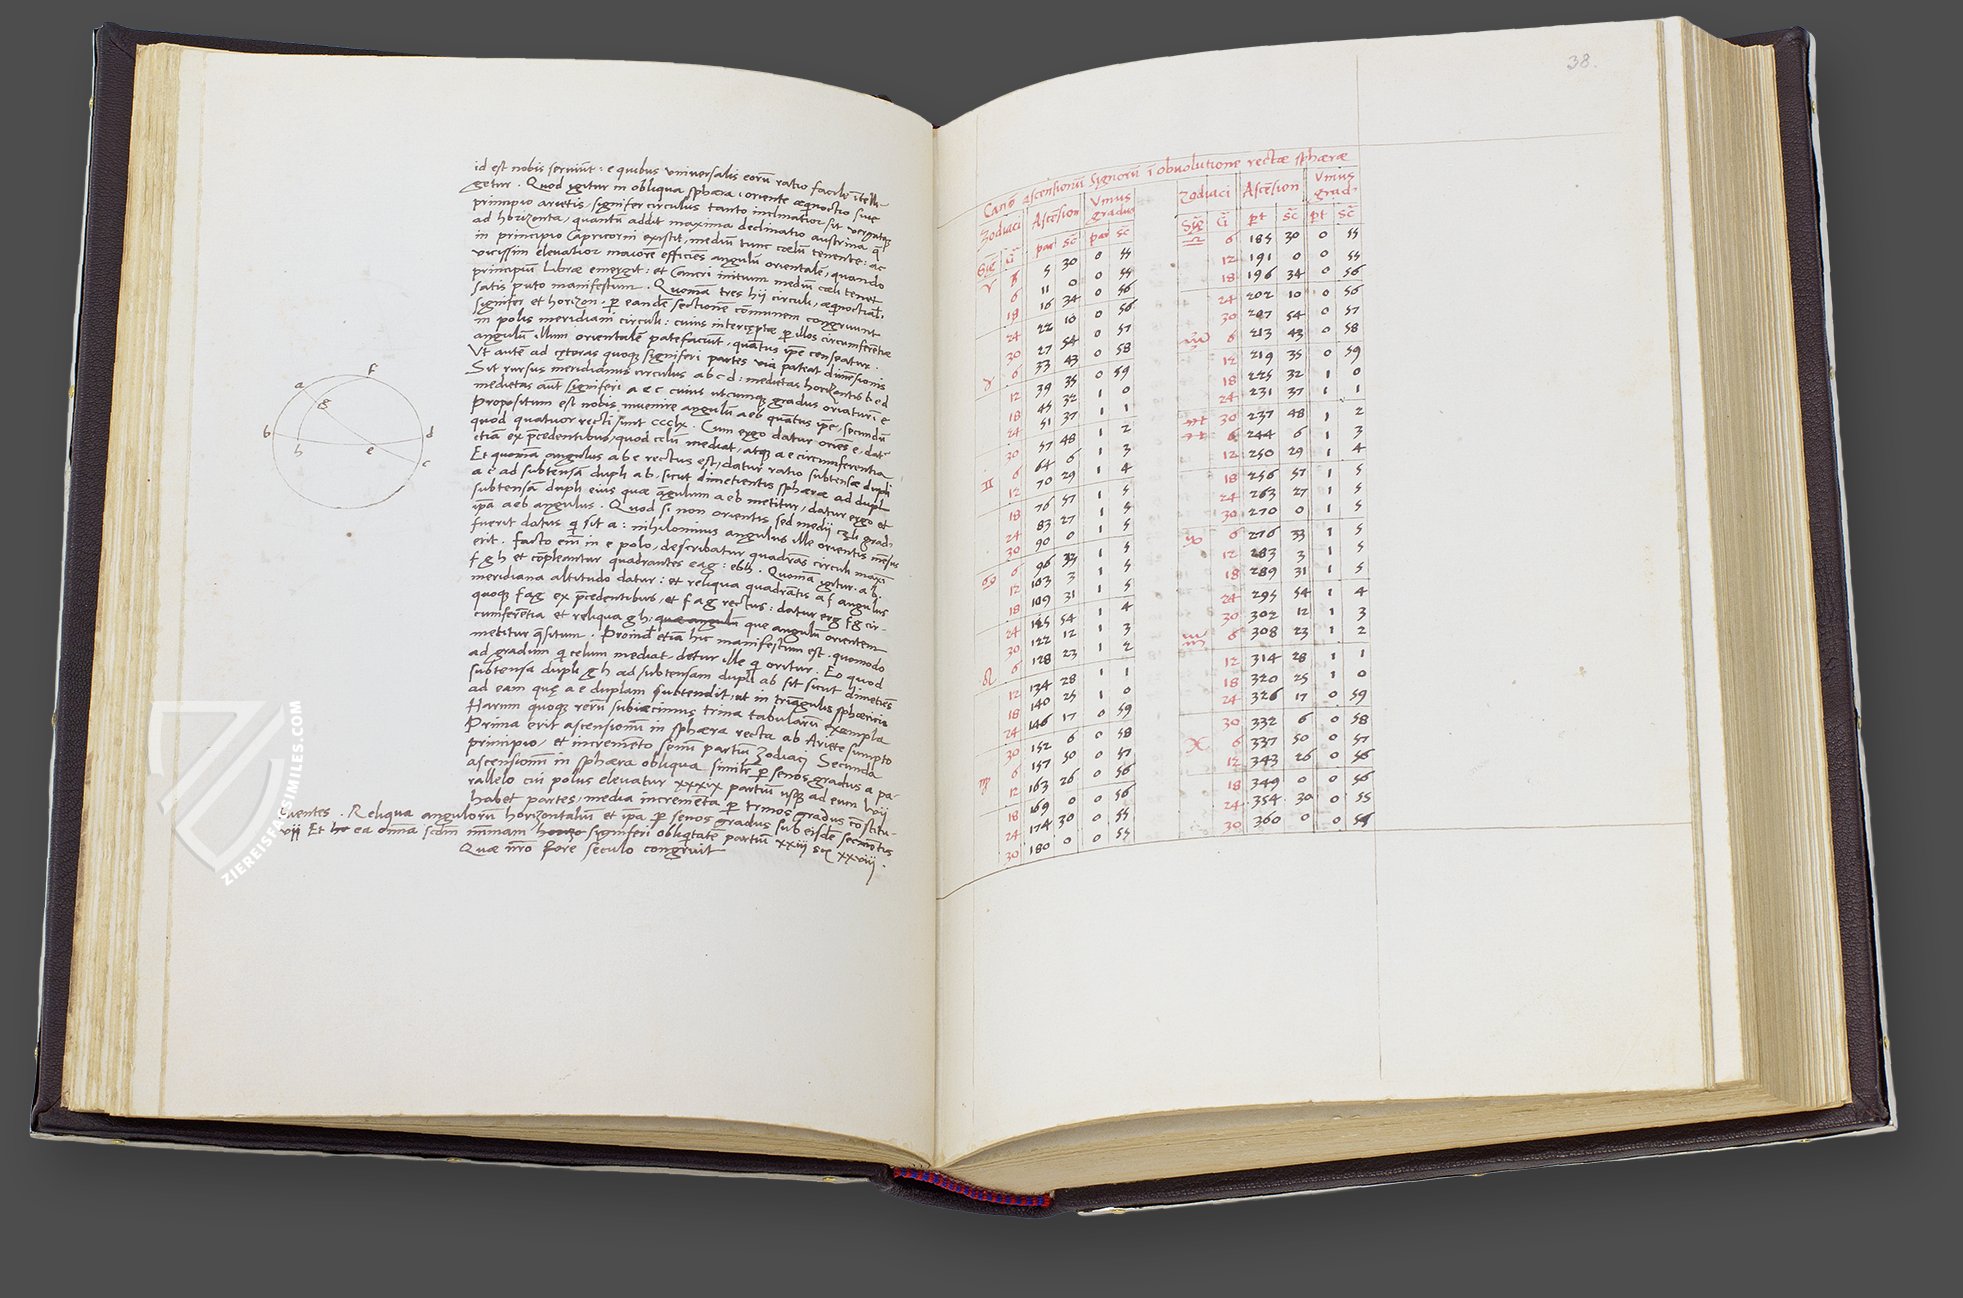 id est nobis serviunt : e quibus universalis eorũ ratio facile ĩtelli-
getur . Quod igitur in obliqua sphæra , oriente æqnoctio sive
principio arietis , signifer circulus tanto inclinatior sit vergatqȝ
ad horizonta , quantũ addit maxima declinatio austrina q̃
in principio Capricorni existit , mediũ tunc cœlũ tenente : ac
vicissim elevatior maiorẽ efficiẽs angulũ orientalẽ , quando
principiũ Libræ emergit : et Cancri initium mediũ cœli tenet
satis puto manifestum . Quoniã tres hii circuli , æqnoctial
signifer et horizon . ꝑ eandẽ sectionẽ cõmunem congruunt
in polis meridiani circuli : cuius interceptæ ꝑ illos circumferẽtiæ
angulũ illum orientalẽ patefaciũt , quãtus ipe censeatur .
Ut autẽ ad cęteras quoqȝ signiferi partes via pateat dimẽsionis
Sit rursus meridianus circulus a b c d : medietas horizontis b e d
medietas aũt signiferi a e c cuius utcumqȝ gradus oriatur ĩ e
Propositum est nobis invenire angulũ a e b quãtus ipe , secundũ
quod quatuor recti sunt ccclx . Cum ergo datur oriẽs e . dat
etiam ex p̃cedentibus , quod cęlũ mediat , atqȝ a e circumferentia
Et quoniam angulus a b e rectus est , datur ratio subtensæ dupli
a e ad subtensã dupli a b . sicut dimetientis sphæræ ad dupl
subtensã dupli eius quæ angulum a e b metitur , datur ergo et
ipã a e b angulus . Quod si non orientis sed medii cœli grad
fuerit datus q̃ sit a : nihilominus angulus ille orientis mẽsus
erit . facto em̃ in e polo , describatur quadrãs circuli maxi
f g h et cõpleantur quadrantes e a g : e b h . Quoniã igitur . a b .
meridiana altitudo datur : et reliqua quadrãtis a f angulus
quoqȝ f a g ex p̃cedentibus , et f g a rectus : datur erg f g cir-
cumferẽtia et reliqua g h , quæ angulũ que angulũ orientem
metitur q̃situm . Proind etiã hic manifestum est . quomodo
ad gradum q̃ cęlum mediat , detur ille q̃ oritur . Eo quod
subtensa dupli g h ad subtensam dupli a b sit sicut dimetiẽs
ad eam quę a e duplam subtendit , ut in triãgulis sphæricis
Harum quoqȝ rerũ subiecimus trina tabularũ exempla
Prima erit ascensionũ in sphæra recta ab Ariete sumpto
principio , et incremẽto senũ partiũ Zodiaci Secunda
ascensionũ in sphæra obliqua similr ꝑ senos gradus a pa-
rallelo cui polus elevatur xxxix partiũ usqȝ ad eum lvii
habet partes , media incremẽta ꝑ trinos gradus cõstitu-
entes . Reliqua angulorũ horizontaliũ et ipã ꝑ senos gradus sub eisdẽ sectiõis
vii Et he ea oĩna secdm minimam signiferi obliqtatẽ partiũ xxiii sc̃ xxviii .
Quæ nr̃o fore seculo congruit
a f g b d h e c
38.
Canõ ascensionũ signorũ ĩ obvolutione rectæ sphæræ
Zodiaci Ascẽsion Unius gradus Zodiaci Ascẽsion Unius grad
Sig G part sc part sc Sig G pt sc pt sc
♈ 6 5 30 0 55 ♎ 6 185 30 0 55
12 11 0 0 55 12 191 0 0 55
18 16 34 0 56 18 196 34 0 56
24 22 10 0 56 24 202 10 0 56
30 27 54 0 57 30 207 54 0 57
♉ 6 33 43 0 58 ♏ 6 213 43 0 58
12 39 35 0 59 12 219 35 0 59
18 45 32 1 0 18 225 32 1 0
24 51 37 1 1 24 231 37 1 1
30 57 48 1 2 30 237 48 1 2
♊ 6 64 6 1 3 ♐ 6 244 6 1 3
12 70 29 1 4 12 250 29 1 4
18 76 57 1 5 18 256 57 1 5
24 83 27 1 5 24 263 27 1 5
30 90 0 1 5 30 270 0 1 5
♋ 6 96 33 1 5 ♑ 6 276 33 1 5
12 103 3 1 5 12 283 3 1 5
18 109 31 1 5 18 289 31 1 5
24 115 54 1 4 24 295 54 1 4
30 122 12 1 3 30 302 12 1 3
♌ 6 128 23 1 2 ♒ 6 308 23 1 2
12 134 28 1 1 12 314 28 1 1
18 140 25 1 0 18 320 25 1 0
24 146 17 0 59 24 326 17 0 59
30 152 6 0 58 30 332 6 0 58
♍ 6 157 50 0 57 ♓ 6 337 50 0 57
12 163 26 0 56 12 343 26 0 56
18 169 0 0 56 18 349 0 0 56
24 174 30 0 55 24 354 30 0 55
30 180 0 0 55 30 360 0 0 55
ZIEREISFACSIMILES.COM